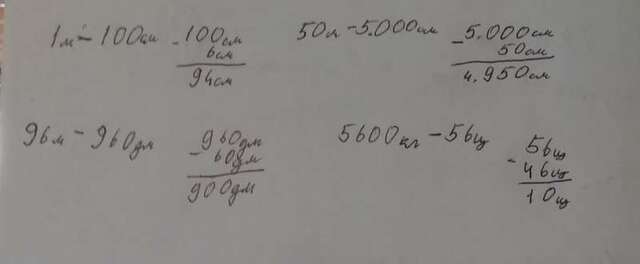 1м - 100см
- 100см
6см
94см
50м - 5.000см
- 5.000см
50см
4.950см
96м - 960дм
- 960дм
60дм
900дм
5600кг - 56ц
- 56ц
46ц
10ц